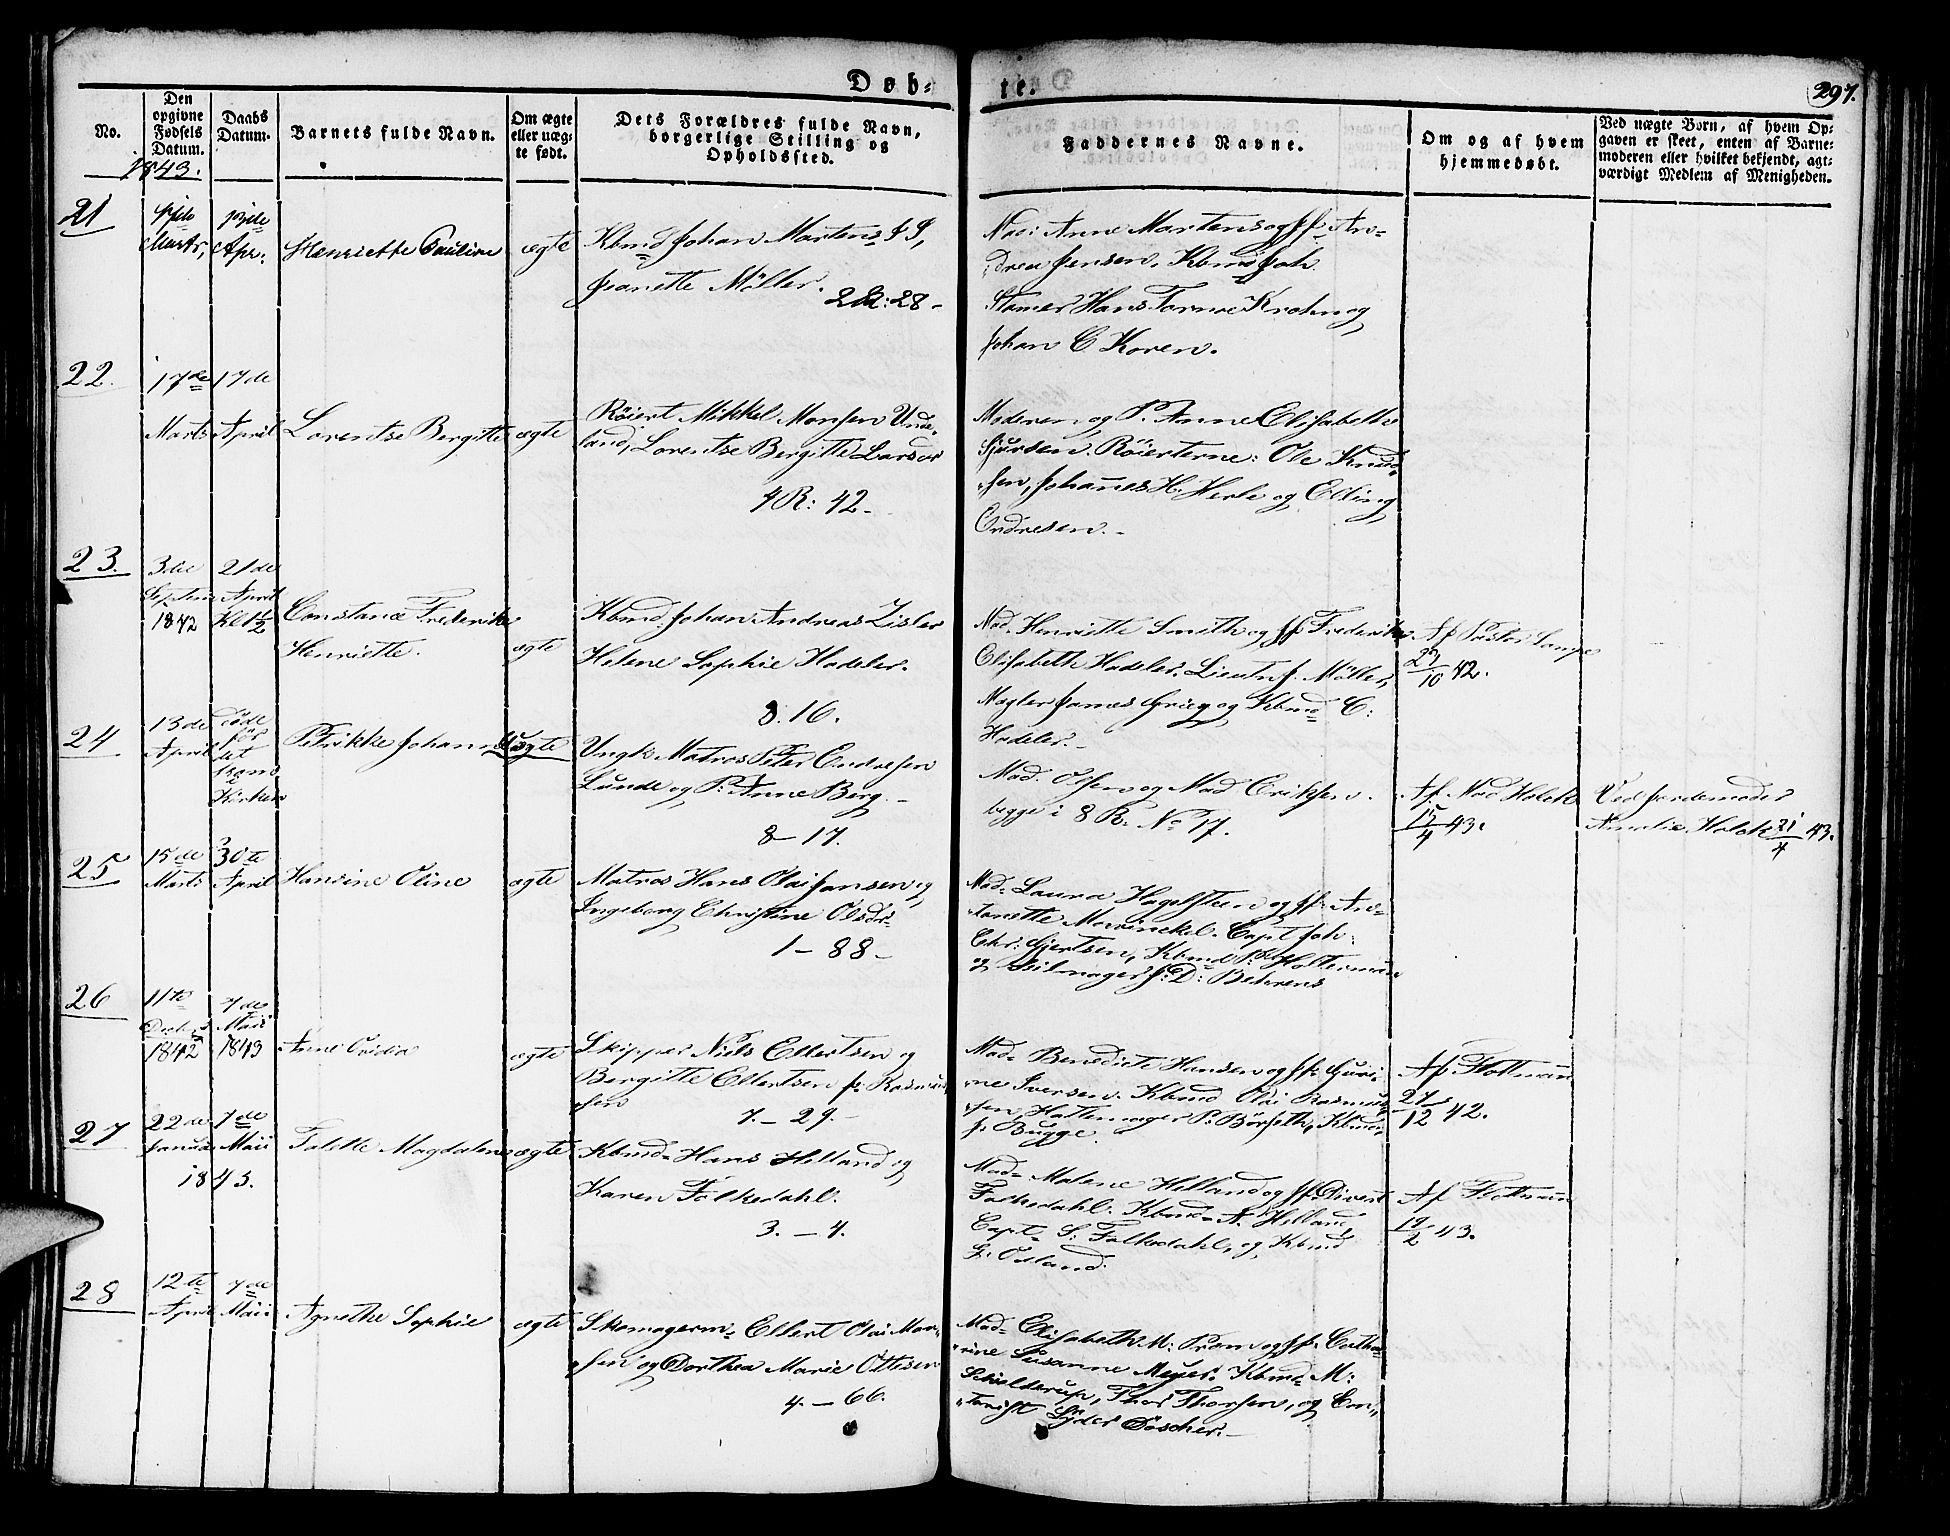 Døb-
te.
297.
No.
Den
opgivne
Fødsels
Datum.
Daabs
Datum.
Barnets fulde Navn.
Om ægte
eller uæg-
te født.
Dets Forældres fulde Navn,
borgerlige Stilling og
Opholdssted.
Faddernes Navne.
Om og af hvem
hjemmedøbt.
Ved uægte Børn, af hvem Op-
gaven er skeet, enten af Barne-
moderen eller hvilket bekjendt, agt-
værdigt Medlem af Menigheden.
1843.
21
Marts,
Apr:
Henriette Pauline
ægte
Kbmd Johan Martens
Jeanette Möller.
2 R: 28 -
Mad: Anne Martens og Jfr An-
drea Jensen. Kbmd Joh.
Stamer Hans Tornøe Krohn og
Johan C Koren.
22.
17de
17de
Marts
April
Lorentse Bergitte
ægte
Röiert Mikkel Monsen Unde-
land, Lorentse Bergitte Larsdr
4 R: 42 -
Moderen og P. Anne Elisabeth
Sjursen. Röierterne: Ole Knud-
sen, Johannes H. Herle og Elling
Endresen. -
23.
3die
21de
Septem
April
1842
Kl 4½
Constance Frederikke
Henriette.
ægte
Kbmd Johan Andreas Lisler
Helene Sophie Hadeler.
8. 16.
Mad. Henriette Smith og Jfr Frederikke
Elisabeth Hadeler. Lieutn J. Möller,
Mægler James Grieg og Kbmd C:
Hadeler. -
Af Pastor Lampe
23/10 42.
24
13de
April
döde
för
det
kom i
Kirken
Petrikke Johanne
Uægte
Ungk. Matros Peter Endresen
Lunde og P: Anne Berg. -
8 - 17.
Mad. Olsen og Mad Eriksen.
begge i 8 R. No 17.
Af Mad Holck
15/4 43.
Ved Jordemoder
Amalie Holck 21/4 43.
25
15de
30te
Marts
April
Hansine Oline
ægte
Matros Hans Olai Jansen og
Ingeborg Christine Olsdr
1 - 88 -
Mad. Laura Hagelsteen og Jfr An-
tonette Mowinckel. Capt Joh:
Chr: Gjertsen, Kbmd P. Holtermann
og Seilmager J: D: Behrens
26
11te
7de
Decbr
Maii
1842
1843
Anne Ovidia
ægte
Skipper Niels Ellertsen og
Bergitte Ellertsen f: Rasmus-
sen
7. - 29. -
Mad. Benedicte Hansen og Jfr Guri-
ne Iversen. Kbmd Olai Rasmus-
sen, Hattemager P: Börseth, Kbmd
J. Bugge.
Af Flottmann
27/12 42.
27
22de
7de
Januar
Maii
1843.
Falette Magdalene
ægte
Kbmd Hans Helland og
Karen Falkedahl.
3. - 4.
Mad. Malene Hilland og Jfr Divert
Falkedahl. Kbmd A. Hilland,
Capt. S: Falkedahl, og Kbmd
G. Odland.
Af Flottmann
12/2 43.
28
12te
7de
April
Maii
Agnethe Sophie
ægte
Skomagerm. Ellert Olai Mar-
sen og Dorthea Marie Ottesen
4. - 66.
Mad. Elisabeth M: Prom og Jfr Catha-
rine Susanne Meyer. Kbmd M:
Schielderup, Thor Thorsen, og Con-
torist Lyder Döscher. -